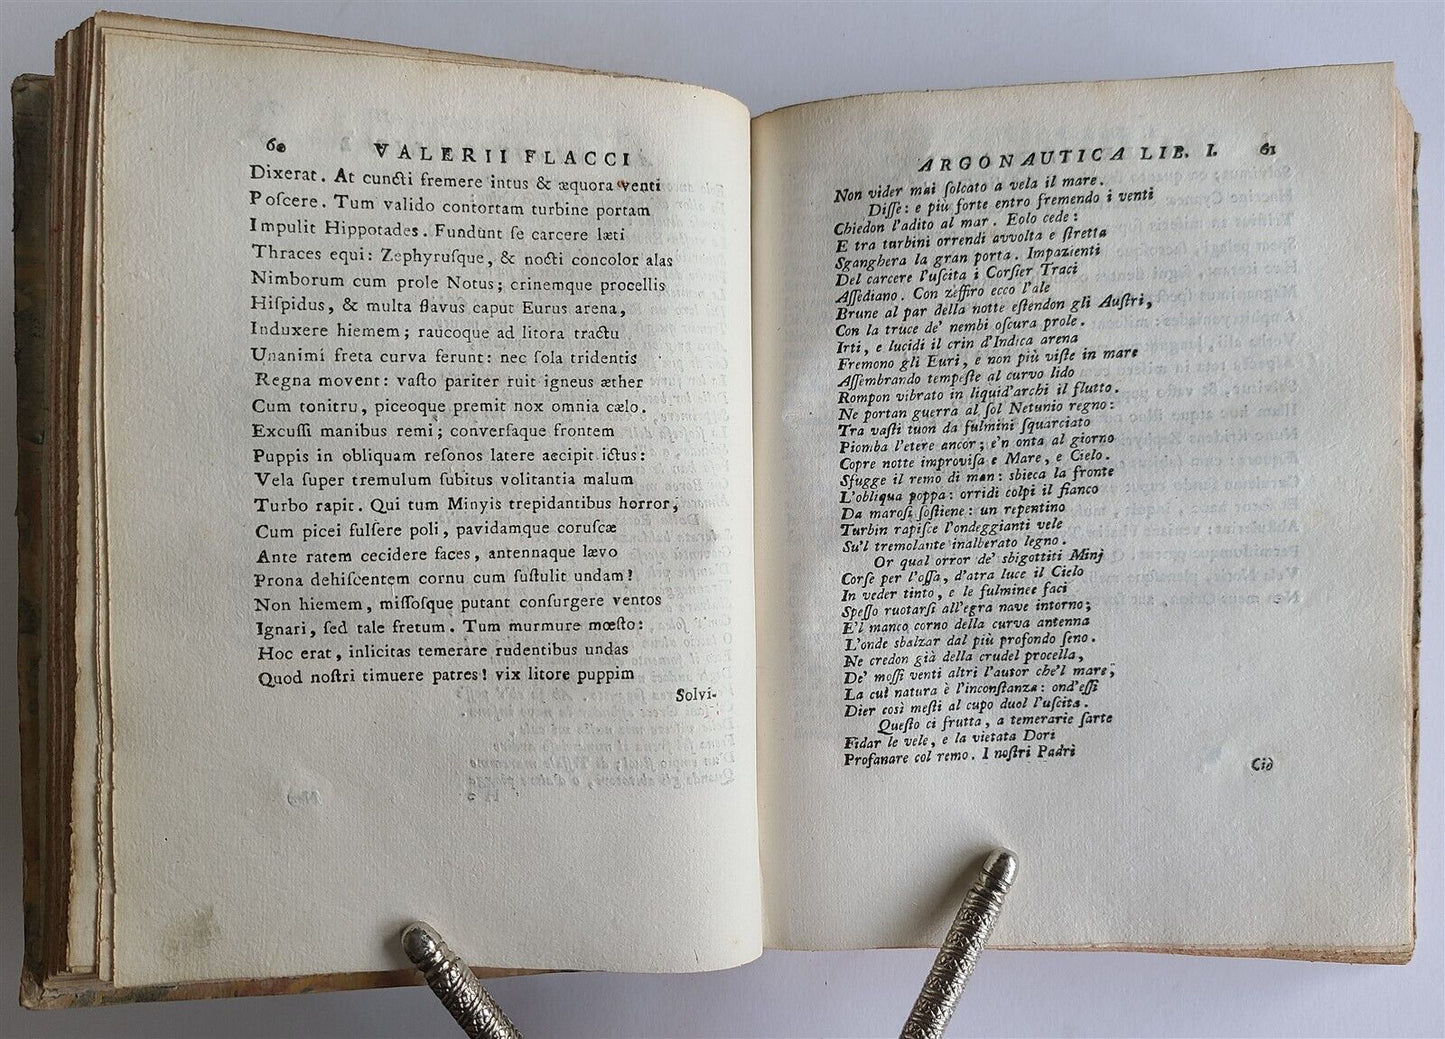 60 VALERII FLACCI
Dixerat. At cuncti fremere intus & æquora venti
Poſcere. Tum valido contortam turbine portam
Impulit Hippotades. Fundunt ſe carcere læti
Thraces equi: Zephyruſque, & nocti concolor alas
Nimborum cum prole Notus; crinemque procellis
Hiſpidus, & multa flavus caput Eurus arena,
Induxere hiemem; raucoque ad litora tractu
Unanimi freta curva ferunt: nec ſola tridentis
Regna movent: vaſto pariter ruit igneus æther
Cum tonitru, piceoque premit nox omnia cælo.
Excuſſi manibus remi; converſaque frontem
Puppis in obliquam reſonos latere accipit ictus:
Vela ſuper tremulum ſubitus volitantia malum
Turbo rapit. Qui tum Minyis trepidantibus horror,
Cum picei fulſere poli, pavidamque coruſcæ
Ante ratem cecidere faces, antennaque lævo
Prona dehiſcentem cornu cum ſuſtulit undam!
Non hiemem, miſſoſque putant conſurgere ventos
Ignari, ſed tale fretum. Tum murmure mœſto:
Hoc erat, inlicitas temerare rudentibus undas
Quod noſtri timuere patres! vix litore puppim
Solvi-
ARGONAUTICA LIB. I. 61
Non vider mai ſolcato a vela il mare.
Diſſe: e più forte entro fremendo i venti
Chiedon l'adito al mar. Eolo cede:
E tra turbini orrendi avvolta e ſtretta
Sganghera la gran porta. Impazienti
Del carcere l'uſcita i Corſier Traci
Aſſediano. Con zeffiro ecco l'ale
Brune al par della notte eſtendon gli Auſtri,
Con la truce de' nembi oſcura prole.
Irti, e lucidi il crin d'Indica arena
Fremono gli Euri, e non più viſte in mare
Aſſembrando tempeſte al curvo lido
Rompon vibrato in liquid'archi il flutto.
Ne portan guerra al ſol Netunio regno:
Tra vaſti tuon da fulmini ſquarciato
Piomba l'etere ancor; e'n onta al giorno
Copre notte improviſa e Mare, e Cielo.
Sfugge il remo di man: sbieca la fronte
L'obliqua poppa: orridi colpi il fianco
Da maroſi ſoſtiene: un repentino
Turbin rapiſce l'ondeggianti vele
Su'l tremolante inalberato legno.
Or qual orror de' sbigottiti Minj
Corſe per l'oſſa, d'atra luce il Cielo
In veder tinto, e le fulminee faci
Speſſo ruotarſi all'egra nave intorno;
E'l manco corno della curva antenna
L'onde sbalzar dal più profondo ſeno.
Ne credon già della crudel procella,
De' moſſi venti altri l'autor che'l mare,
La cui natura è l'inconſtanza: ond'eſſi
Dier così meſti al cupo duol l'uſcita.
Queſto ci frutta, a temerarie ſarte
Fidar le vele, e la vietata Dori
Profanare col remo. I noſtri Padri
Ciò